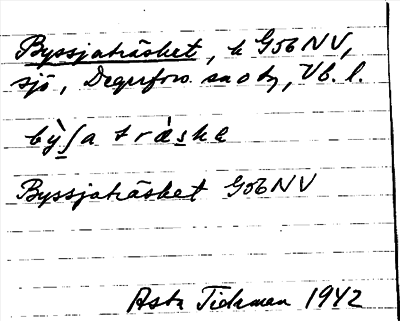 Byssjaträsket, k G56NV,
sjö, Degerfors sn o tg, Vb. l.
bỳʃa tràske
Byssjaträsket G56NV
Asta Tideman 1942